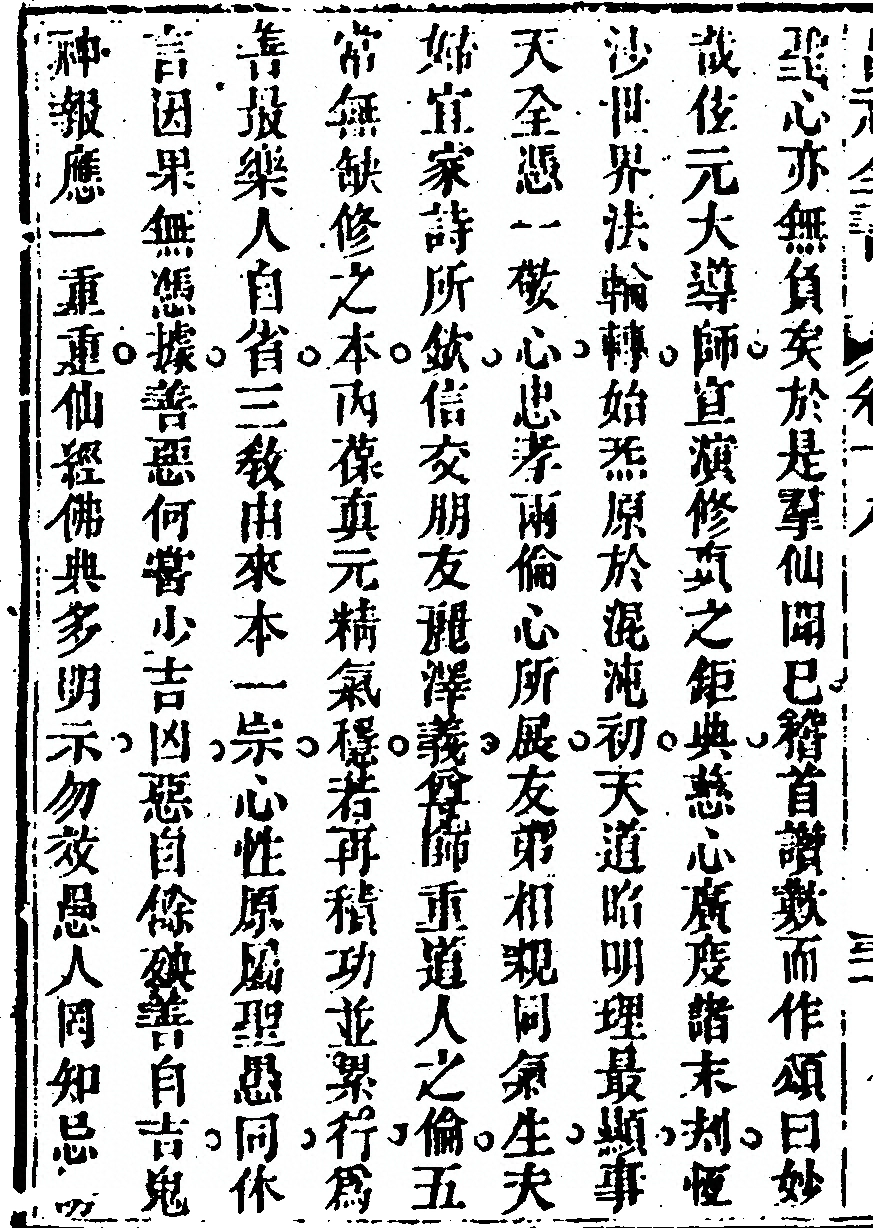 聖心亦無負矣於是羣仙聞已稽首讚歎而作頌曰妙
哉佐元大導師宣演修眞之鉅典慈心廣度諸末刼恆
沙世界法輪轉始炁原於混沌初天道昭明理最顯事
天全憑一敬心忠孝兩倫心所展友弟相親同氣生夫
婦宜家詩所欽信交朋友麗澤義尊師重道人之倫五
常無缺修之本內葆眞元精氣穩若再積功並累行爲
善最樂人自省三敎由來本一宗心性原屬聖愚同休
言因果無憑據善惡何嘗少吉凶惡自餘殃善自吉鬼
神報應一重重仙經佛典多明示勿效愚人罔知忌